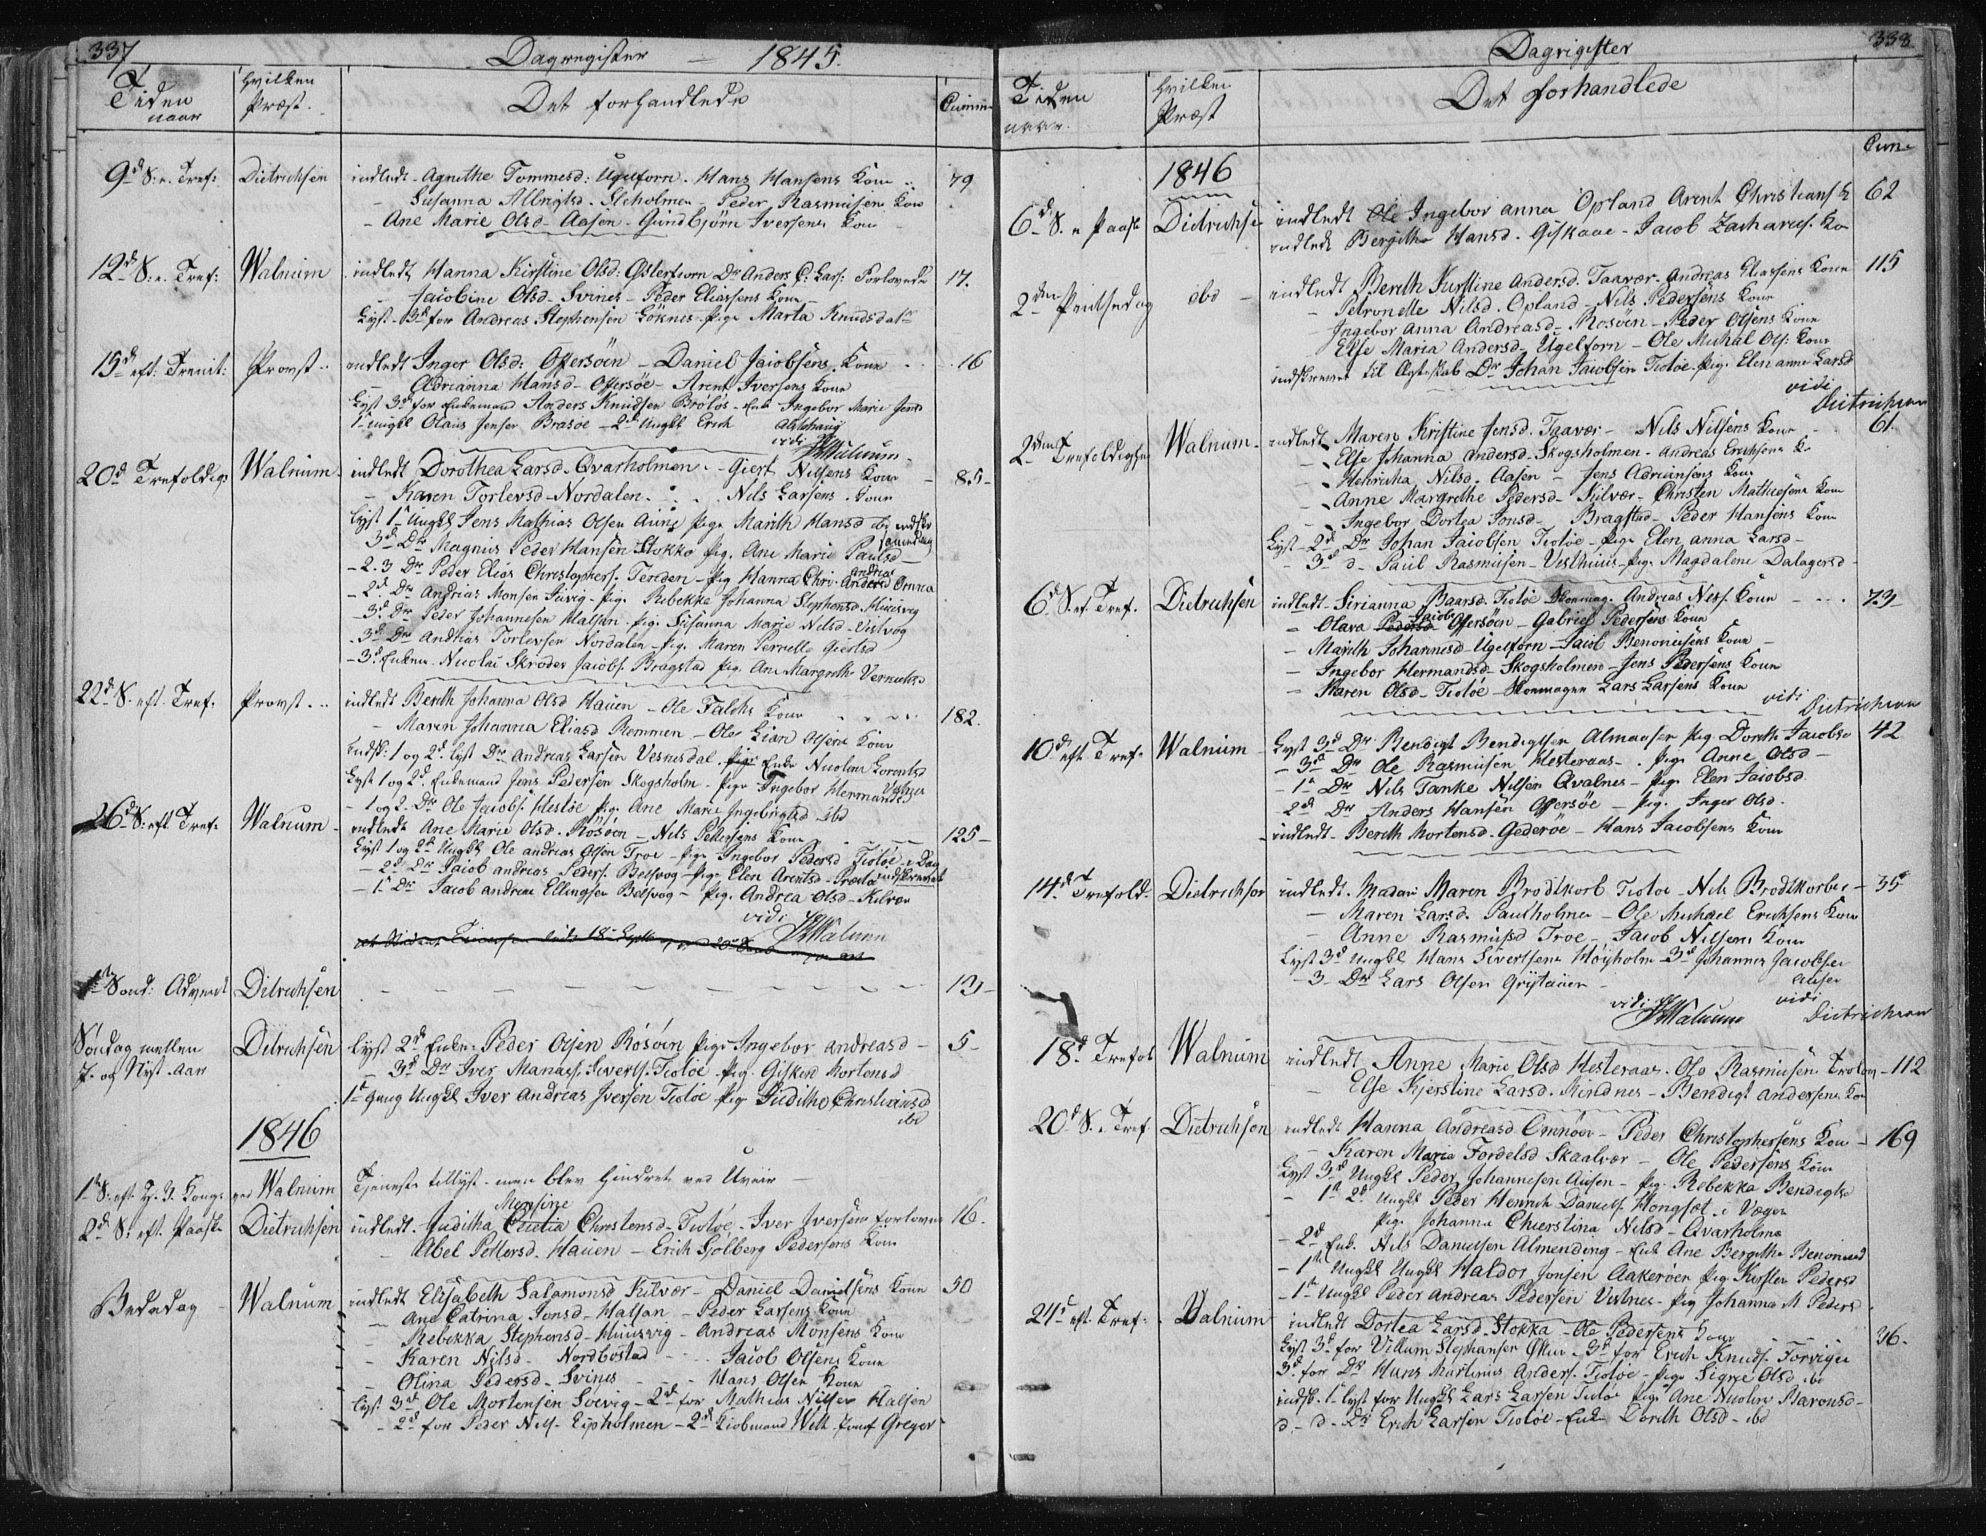 337
Dagregister — 1845.
Tiden naar
Hvilken Præst.
Det forhandlede
Cumm
9d S. e. Tref: Dietrichsen indledt. Agnethe Tommesd: Ugelforn. Hans Hansens Kone 79
- Susanna Albrigtsd. Steholmen - Peder Rasmusen Kone
- Ane Marie Olsd. Aasen. Gundbjørn Iversens Kone
12d S. e. Tref: Walnum indledt Hanna Kirstine Olsd. Dr Anders C. Lars: Forlovede 17.
- Jacobine Olsd. Svines - Peder Eliassens Kone
Lyst 3d for Andreas Stephensen Loknes. pige Marta Knudsdatr
15d eft: Trenit: Provst.. indledt Inger Olsd: Offersøen - Daniel Jacobsens Kone 16
- Adrianna Hansd - Offersøe - Arent Iversens Kone
Lyst 3d for Enkemand Anders Knudsen Brøløs - Enke Ingebor Marie Jensd
1 ungkl Olaus Jensen Brasøe - 2d Ungkl Erich
vidi Walnum
20d Trefoldigh Walnum - indledt Dorothea Larsd. Qvarholmen. - Giert Nilsens Kone - 85 -
- Karen Torlevsd - Nordalen. Nils Larsens Kone
Lyst 1 Ungkl Jens Mathias Olsen Aune pige Marith Hansd ibd
- 3d Dr Magnus Peder Hansen Stokka pig. Ane Marie Paulsd
- 2. 3 Dr Peder Elias Christophers. Teriden - pig Hanna Chri. Andrea Andersd Omnøa
- 2d Dr Andrias Monsen Suvig - pig. Rebekke Johanna Stephensd. Kuusvig
- 3d Dr Peder Johannesen Halsan. pig. Susanna Marie Nilsd - Vistvog
- 3d Dr Andrias Torlevsen Nordalen - pig. Maren Pernelle Giertsd
- 3d Enkem. Nicolai Skrøder Jacobs. Bragstad pig. Ane Margrethe
22d S. eft. Tref. Provst... indledt Berith Johanna Olsd Hauen - Ole Falchs Kone 182.
- Maren Johanna Eliasd Remmen - Ole Olsens Kone
Indsk: 1 og 2d lyst Dr Andreas Larsen Vesnesdal. Enke Nicoline Lorentsd
Lyst 1 og 2d Enkemand Jens Pedersen Skogsholm - pige Ingebor Hermandsd
- 1 og 2. Dr Ole Jacobs. Hestøe pig. Ane Marie ibd
26d S. eft Tref. Walnum - indledt Ane Marie Olsd. Røsøen - Nils Pettersens Kone 125 -
Lyst 1 og 2d Ungkl Ole Andreas Olsen Troe - pige Ingebor Pedersd Tiøtøe - i Dag indskrevet
- 2d Dr Jacob Andreas Peders. Belsvog - pige Elen Arentsd -
- 1 Dr Jacob Andreas Ellingsen Belsvog - pig. Andrea Olsd - Kilvær
vidi Walnum
1t Sønd: Advent Ditrichsen - - - - - 131 -
Søndag mellen J. og Nyt. Aar Ditrichsen Lyst 2d Enkem Peder Olsen Røsøen pige Ingebor Andreasd - 5 -
- 3d Dr Iver Manass. Sivertsen Tiøtøe pig. Giskin Mortensd
1t Gang Ungkl Iver Andreas Iversen Tiøtøe pig Juditha Christiansd ibd
1846
1t S. eft H. 3. Kong. ved Walnum Tjeneste tillyst - men blev hindret ved Uveir -
2d S. eft. Paaske Dietrichsen indledt. Juditha Monsine Christensd - Tiøtøe - Iver Iversens forlovede 16.
- Abel Pettersd. Hauen - Erich Solberg Pedersens Kone
Bededag Walnum indledt Elisabeth Salamonsd Kilvær - Daniel Danielsens Kone 50
- Ane Catrina Jonsd - Halsan - Peder Larsens Kone
- Rebekka Stephensd - Kuusvig - Andreas Monsens Kone
- Karen Nilsd - Nordbostad - Jacob Olsens Kone
- Olina Pedersd - Svines - Hans Olsen Kone
Lyst 3d Ole Mortensen Søevig - 2d for Mathias Nilsen Halsen
- 2d for Peder Nils. Lipholmen - 2d Kiøbmand Wilh. Josef Greger
338
Dagrigister
Tiden naar.
Hvilken Præst
Det forhandlede
Cum.
1846
6d S. e Paask Dietrichse indledt Ole Ingebor Anna Opland Arent Christians K 62
indledt Bergithe Hansd. Giskaae - Jacob Zacharies. Ko
2den Pintsedag ibd - indledt Berith Kirstine Andersd. Taavær. Andreas Eliassens Kone 115
- Petronelle Nilsd. Opland - Nils Pedersens Kone
- Ingebor Anna Andreasd - Rosøen - Peder Olsens Kone
- Else Maria Andersd - Ugelforn - Ole Michal Ols: Kone
indskrevet til Ægteskab Dr Johan Jacobsen Tiøtøe. pig. Elen Anne Larsd
vidi Dietrichson
2den Trefoldighe Walnum - indledt Maren Kristine Jensd. Taavær - Nils Nilsens Kone 61.
- Else Johanna Andersd. Skogsholmen - Andreas Erichsens K.
- Henricha Nilsd. Aasen - Jens Adriansens Kone
- Anne Margrethe Pedersd - Kilvær - Christen Mathiesens Kone
- Ingebor Dortea Jonsd - Bragstad - Peder Hansens Kone
Lyst - 2d Dr Johan Jacobsen Tiøtøe - pige Elen Anna Larsd -
- 3d d. Paul Rasmusen - Vesthuus - pige Magdalene Dalagersd -
6d S. ef. Tref. Dietrichsen indledt - Sirianna Baarsd. Tiøtøe Skonmag. Andreas Niss. Kone 79 -
- Olava Jacobs Offersøen - Gabriel Pedersens Kone
- Marith Johannesd Ugelforn - Jacob Benoniesens Kone -
- Ingebor Hermandsd - Skogsholmen - Jens Pedersens Kone
- Karen Olsd - Tiøtøe - Skonmager Lars Larsens Kone
vidi Dietrichson
10d eft Tref. Walnum - Lyst 3d Dr Bendigt Bendigtsen Almaasen pig. Dorith Jacobs 42
- 3d Dr Ole Rasmusen Hesteraas - pige Anne Olsd -
- 1t Dr Nils Tanke Nilsen Qvalnes - pig. Elen Jacobsd.
- 2d Dr Anders Hansen Offersøe - pig. Inger Olsd.
indledt - Berith Mortensd. Gederøe - Hans Jacobsens Kone
14d Trefold. Dietrichsor indledt. Madam Maren Brodtkorb Tiøtøe - Nils Brodtkorbs - 35
- Maren Larsd. Paulholmen - Ole Michael Erichsens Kone
- Anne Rasmusd Troe - Jacob Nilsens Kone
Lyst 3d Ungkl Hans Sivertsens Høyholm - 3d Johannes Jacobsen
- 3 - Dr Lars Olsen Gristauen -
vidi Walnum
vidi Dietrichson
18d Trefol Walnum indledt Anne Marie Olsd Hesteraas - Ole Rasmusens - 112
- Else Kjerstine Larsd. Mindnes - Bendigt Andersens Kon
20d S. e Tref. Dietrichson indledt Hanna Andreasd. Omnøen - Peder Christophersens Kon - 169
- Karen Maria Tordelsd Skaalvær - Ole Pedersens Kone
Lyst 3d Ungkl Peder Johannesen - pig. Rebekka Bendigtsd
- 1t 2d Ungkl Peder Henrich Daniels. Hongset i Vægen
pig. Johanna Chierstina Nilsd - Qvarholmen
- 2d Enk. Nils Danielsen Almending - Enk Ane Bergithe Benoniesd
- 1t Ungkl Ungkl Haldor Jonsen Aakerøen pig Kirsten Pedersd
- 1t Ungkl Peder Andreas Pedersen Vistnes - pig Johanna M Peders
24d eft. Tref. Walnum indledt Dortea Larsd. Stokka - Ole Pedersens Kone 36.
Lyst 3d for Villum Stephansen - 3d for Erich Knuds.
3d for Dr Hans Martinus Anders. Tiøtøe - pige Signe Olsd ibd
indsk. 1t lyst for Ungkl Lars Larsen Tiøtøe pig Ane Nicoline Aaronsd -
d. - d. - Dr Erich Larsen Tiøtøe - Enke Dorith Olsd - ibd